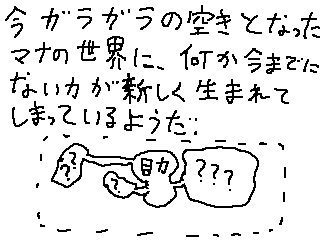 今ガラガラの空きとなった
マナの世界に、何か今までに
ない力が新しく生まれて
しまっているようだ:
?
?
助
???